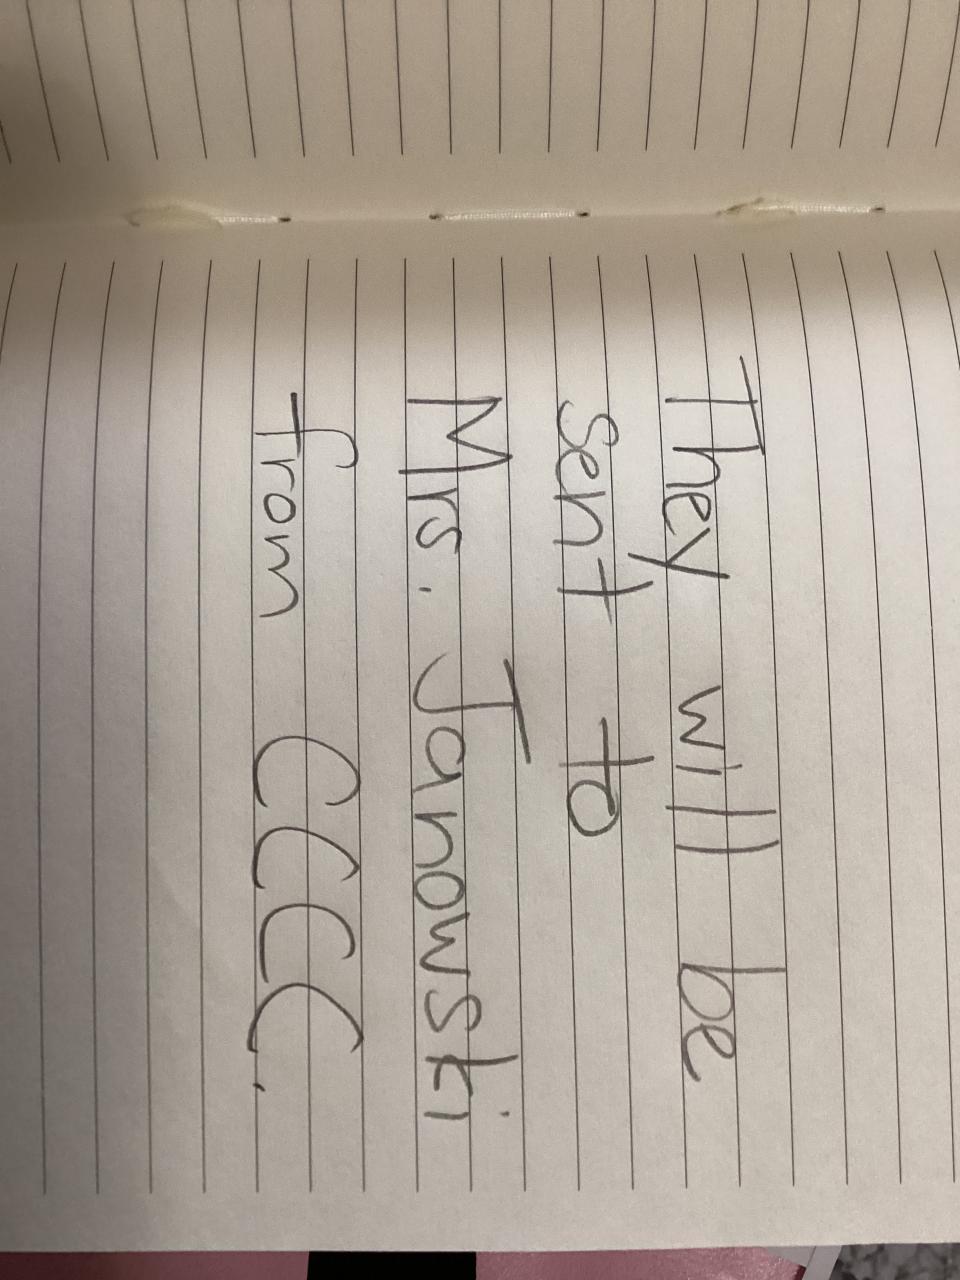 They will be
sent to
Mrs. Janowski
from CCCC.